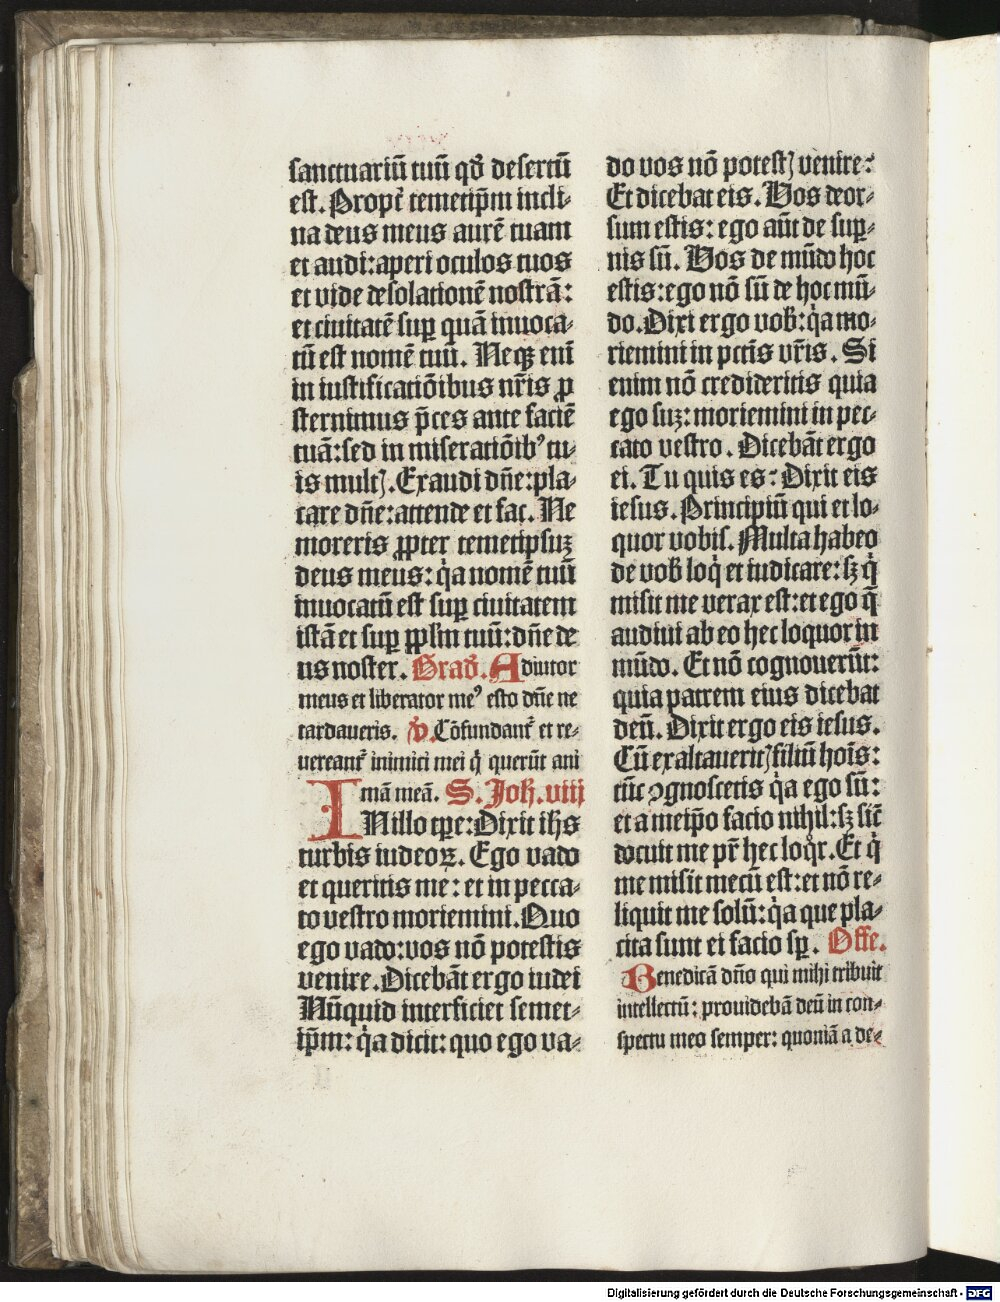 sanctuariū tuū qđ desertū
est. Propt̄ temetip̄m incli-
na deus meus aurē tuam
et audi: aperi oculos tuos
et vide desolationē nostrā:
et ciuitatē suꝑ quā inuoca-
tū est nomē tuū. Neqꝫ enī
in iustificatiōibus nr̄is ꝓ
sternimus p̄ces ante faciē
tuā: sed in miseratiōibꝰ tu-
is multꝭ. Exaudi dn̄e: pla-
care dn̄e: attende et fac. Ne
moreris ꝓpter temetipsuꝫ
deus meus: qͥa nomē tuū
inuocatū est suꝑ ciuitatem
istā et suꝑ ꝓpl̄m tuū: dn̄e de
us noster. Grad̄. Adiutor
meus et liberator meꝰ esto dn̄e ne
tardaveris. v̄. Cōfundant̄ et re-
uereant̄ inimici mei qͥ querūt ani
mā meā. S. Joh̄. viij
IN illo tp̄e: Dixit ih̄s
turbis iudeoꝝ. Ego vado
et queritis me: et in pecca-
to vestro moriemini. Quo
ego vado: vos nō potestis
venire. Dicebāt ergo iudei
Nūquid interficiet semet-
ip̄m: qͥa dicit: quo ego va-
do vos nō potestꝭ venire:
Et dicebat eis. Vos deor-
sum estis: ego aūt de suꝑ-
nis sū. Vos de mūdo hoc
estis: ego nō sū de hoc mū-
do. Dixi ergo vob̄: qͥa mo-
riemini in pctīs vr̄is. Si
enim nō credideritis quia
ego suꝫ: moriemini in pec-
cato vestro. Dicebāt ergo
ei. Tu quis es: Dixit eis
iesus. Principiū qui et lo-
quor vobis. Multa habeo
de vob̄ loqͥ et iudicare: sꝫ qͥ
misit me verax est: et ego q̄
audiui ab eo hec loquor in
mūdo. Et nō cognouerūt:
quia patrem eius dicebat
deū. Dixit ergo eis iesus.
Cū exaltaveritꝭ filiū hoīs:
tūc ꝯgnoscetis qͥa ego sū:
et a meip̄o facio nihil: sꝫ sic̄
docuit me pr̄ hec loqͦr. Et qͥ
me misit mecū est: et nō re-
liquit me solū: qͥa que pla-
cita sunt ei facio sꝑ. Offe.
Benedicā dn̄o qui mihi tribuit
intellectū: prouidebā deū in con-
spectu meo semper: quoniā a de-
Digitalisierung gefördert durch die Deutsche Forschungsgemeinschaft - DFG